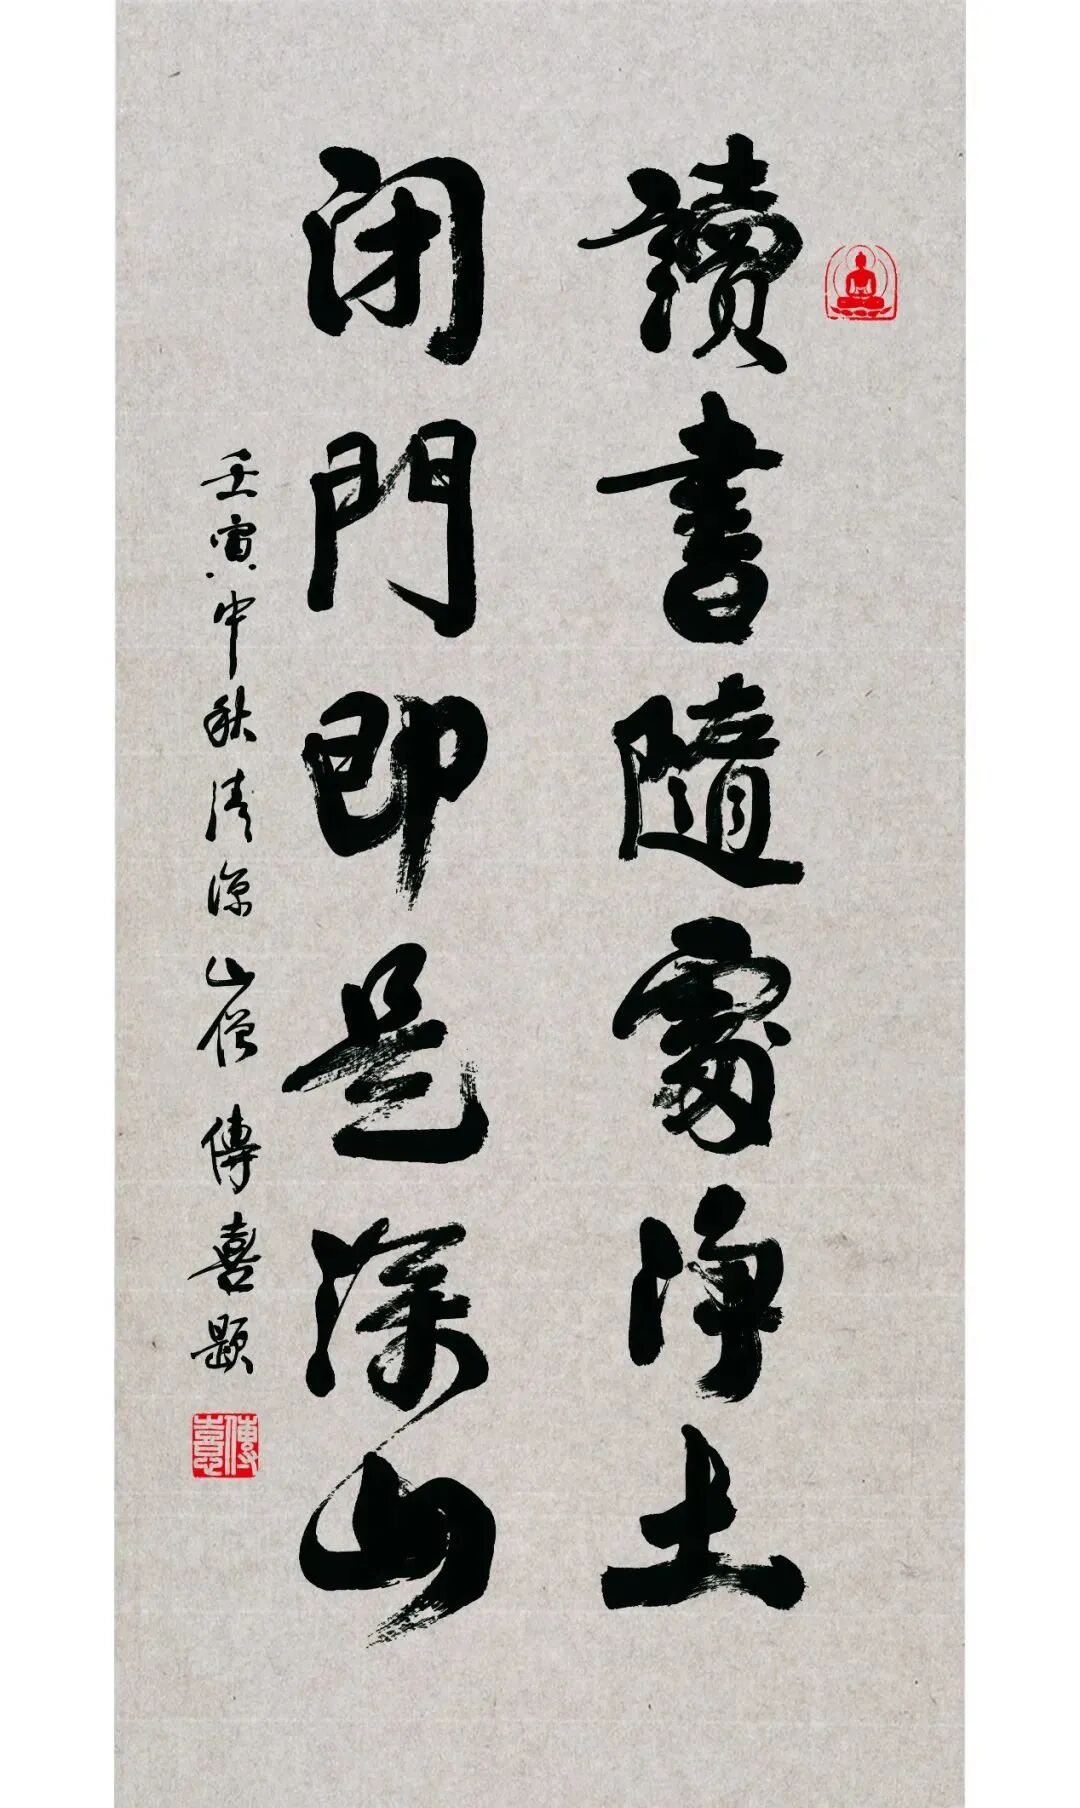 讀書隨處净土
闭門即是深山
壬寅中秋清源山僧傳喜題
傳喜